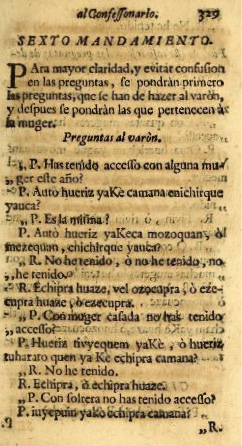 al Confessonario. 329
SEXTO MANDAMIENTO.
PAra mayor claridad, y evitar confusion
en las preguntas, se pondràn primero
las preguntas, que se han de hazer al varòn,
y despues se pondràn las que pertenecen à
la muger.
Preguntas al varòn.
1. P. Has tenido accesso con alguna mu-
„ ger este año?
P. Auto hueriz yaKè camana enichirque
yauca?
„ P. Es la misma?
P. Auto hueriz yaKeca mozoquan, ò
mezequan, enichirque yauca?
„ R. No he tenido, ò no he tenido, no
„ he tenido.
R. Echipra huaze, vel ozocupra, ò eze-
cupra huaze, ò ezecupra.
„ P. Con muger casada no has tenido
„ accesso?
P. Hueriz tivyequem yaKè, ò hueriz
tuharato quen ya Ke echipra camana?
„ R. No he tenido.
R. Echipra, ò echipra huaze.
„ P. Con soltera no has tenido accesso?
P. iuyepuin yaKè echipra camana?
„ R.